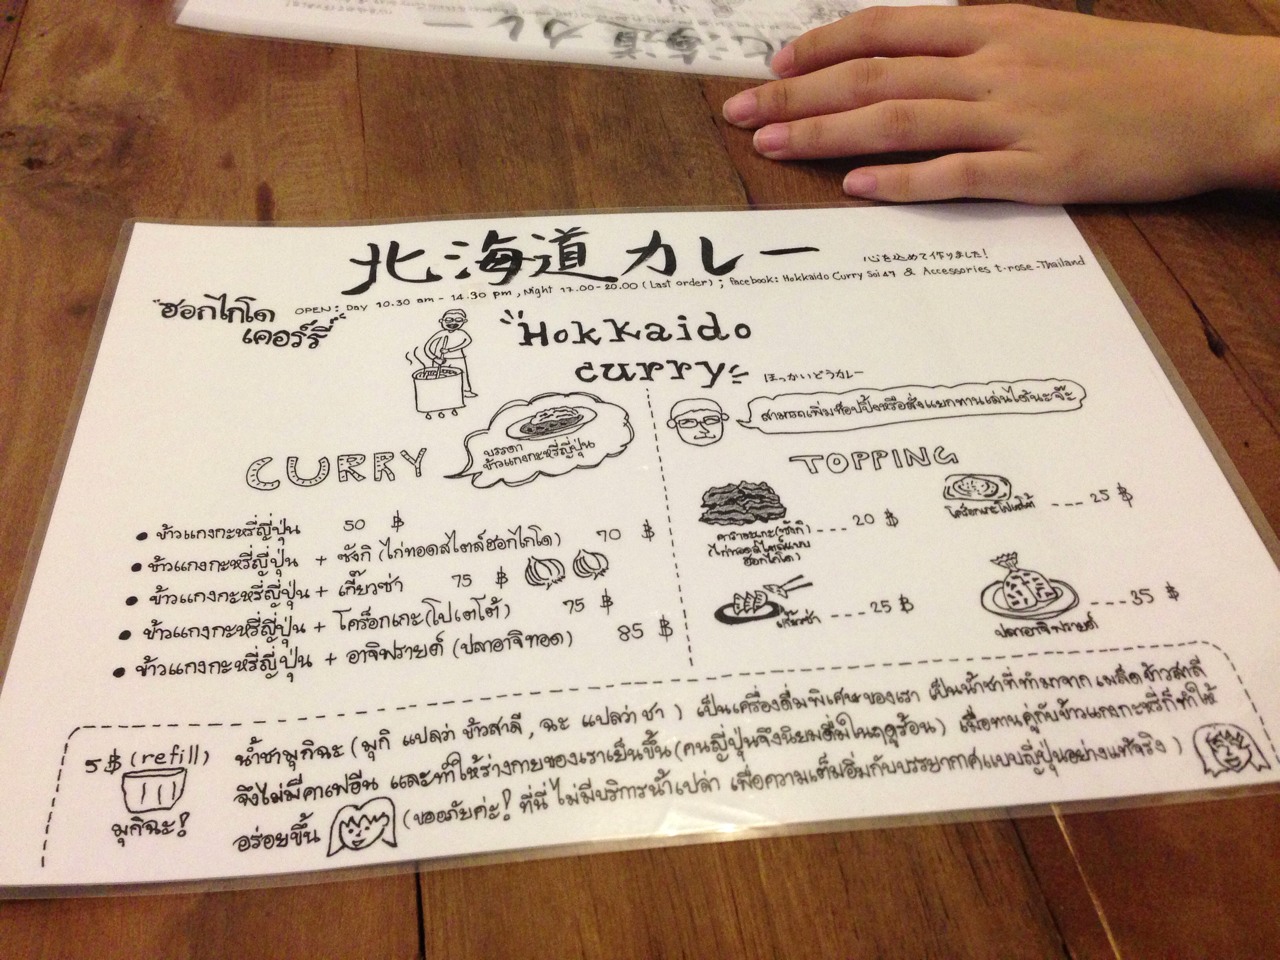 北海道カレー
心を込めて作りました!
"ฮอกไกโด
เคอร์รี่"
OPEN: Day 10.30 am - 14.30 pm, Night 17.00-20.00 (Last order) ; Facebook: Hokkaido Curry Soi 49 & Accessories t-rose-Thailand
Hokkaido
curry
ほっかいどうカレー
CURRY
ข้าวแกงกะหรี่ญี่ปุ่น
• ข้าวแกงกะหรี่ญี่ปุ่น 50 ฿
• ข้าวแกงกะหรี่ญี่ปุ่น + ซังกิ (ไก่ทอดสไตล์ฮอกไกโด) 70 ฿
• ข้าวแกงกะหรี่ญี่ปุ่น + เกี๊ยวซ่า 75 ฿
• ข้าวแกงกะหรี่ญี่ปุ่น + โคร็อกเกะ (โปเตโต้) 75 ฿
• ข้าวแกงกะหรี่ญี่ปุ่น + อาจิฟรายด์ (ปลาอาจิทอด) 85 ฿
สามารถเพิ่มท็อปปิ้งหรือสั่งแยกทานเล่นได้นะจ๊ะ
TOPPING
คาราอะเกะ(ซังกิ) ---- 20 ฿
(ไก่ทอดสไตล์แบบ
ฮอกไกโด)
โคร็อกเกะโปเตโต้ --- 25 ฿
เกี๊ยวซ่า ---- 25 ฿
ปลาอาจิฟรายด์ ---- 35 ฿
5 ฿ (refill)
มุกิฉะ!
น้ำชามุกิฉะ (มุกิ แปลว่า ข้าวสาลี, ฉะ แปลว่า ชา) เป็นเครื่องดื่มพิเศษของเรา เป็นน้ำชาที่ทำมาจาก เมล็ดข้าวสาลี
จึงไม่มีคาเฟอีน และทำให้ร่างกายของเราเย็นขึ้น (คนญี่ปุ่นจึงนิยมดื่มในฤดูร้อน) เมื่อทานคู่กับข้าวแกงกะหรี่ก็ทำให้
อร่อยขึ้น (ขออภัยค่ะ! ที่นี่ ไม่มีบริการน้ำเปล่า เพื่อความเต็มอิ่มกับบรรยากาศแบบญี่ปุ่นอย่างแท้จริง)
北海道カレー